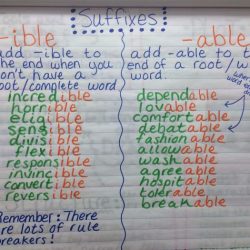 Suffixes
-ible
add -ible to
the end when you
don't have a
root/complete word
incredible
horrible
eligible
sensible
divisible
flexible
responsible
invincible
convertible
reversible
Remember: There
are lots of rule
breakers!
-able
add -able to the
end of a root/w
word.
when
word
dependable
lovable
comfortable
debatable
fashionable
allowable
washable
agreeable
hospitable
tolerable
breakable